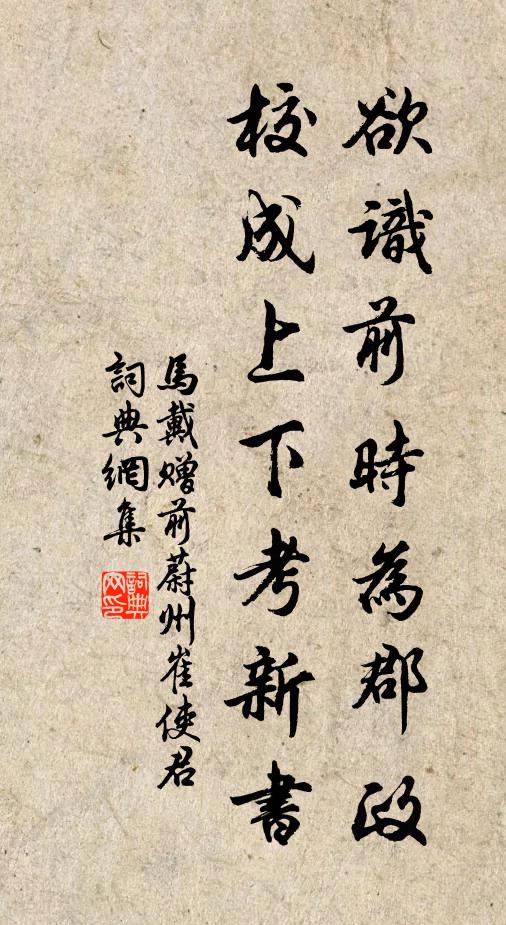 欲識前時為郡政
校成上下考新書
馬戴贈前蔚州崔使君
詞典網集
詞典
网印